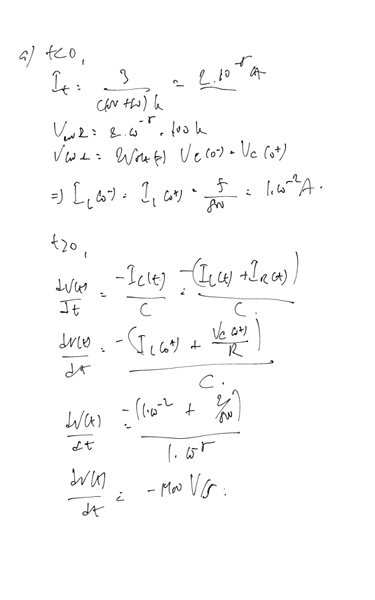 a) t<0,
I_t = 3 / (… + …) k = 2.10^-5 A
… = 2.10^-5 . 100 k
… = 2 Volt(s) V_C(0-) = V_C(0+)
=> I_L(0-) = I_L(0+) = 5 / 500 = 1.10^-2 A.
t>0,
dV(t)/dt = -I_C(t) / C = -(I_L(t) + I_R(t)) / C.
dV(t)/dt = -(I_L(0+) + V_C(0+)/R) / C.
dV(t)/dt = -(1.10^-2 + 2/500) / 1.10^-5
dV(t)/dt = -1400 V/s.